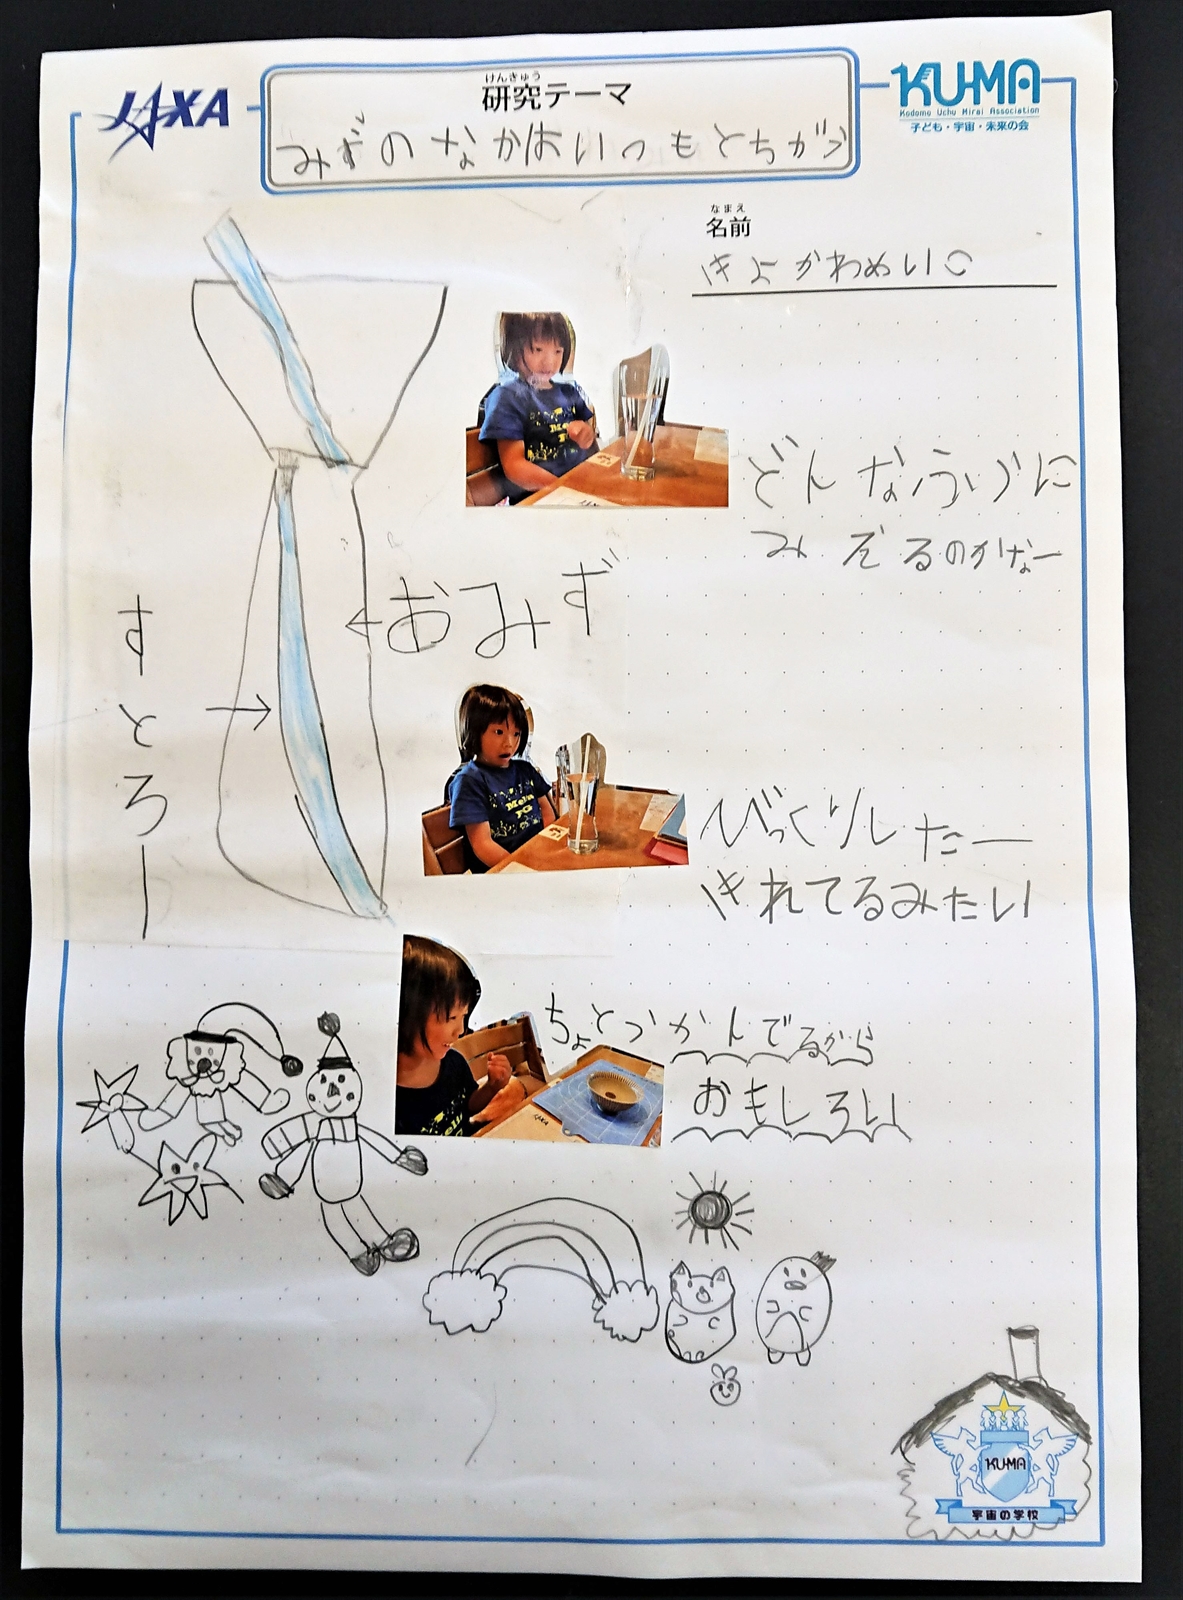 JAXA
けんきゅう
研究テーマ
みずのなかはいつもとちがう
KU-MA
Kodomo Uchu Mirai Association
子ども・宇宙・未来の会
なまえ
名前
きよかわめいこ
どんなふうに
みえるのかなー
おみず
すとろー
びっくりしたー
きれてるみたい
ちょとつかんでるから
おもしろい
KU-MA
宇宙の学校